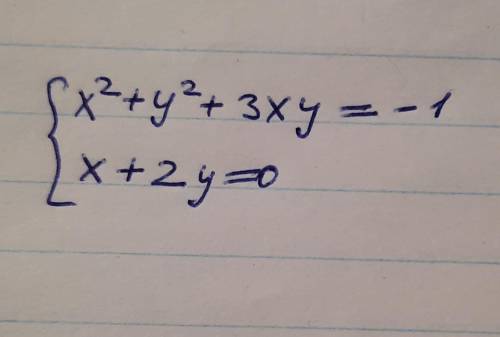 x²+y²+3xy=-1
x+2y=0